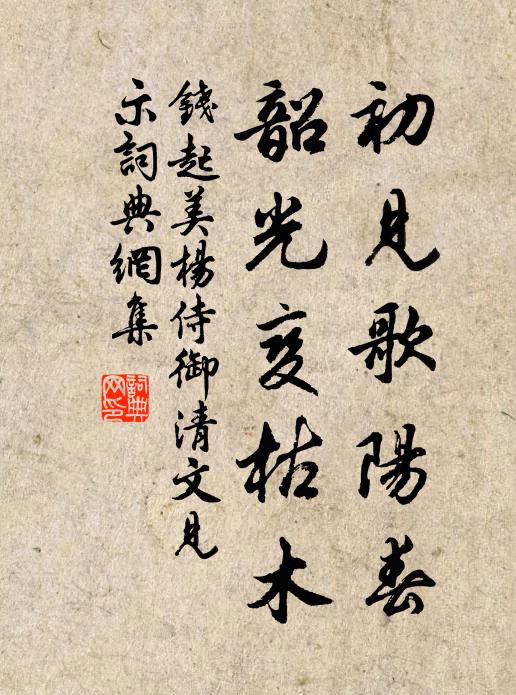 初見歌陽春
韶光变枯木
錢起美楊侍御清文見
示詞典網集
詞典网印